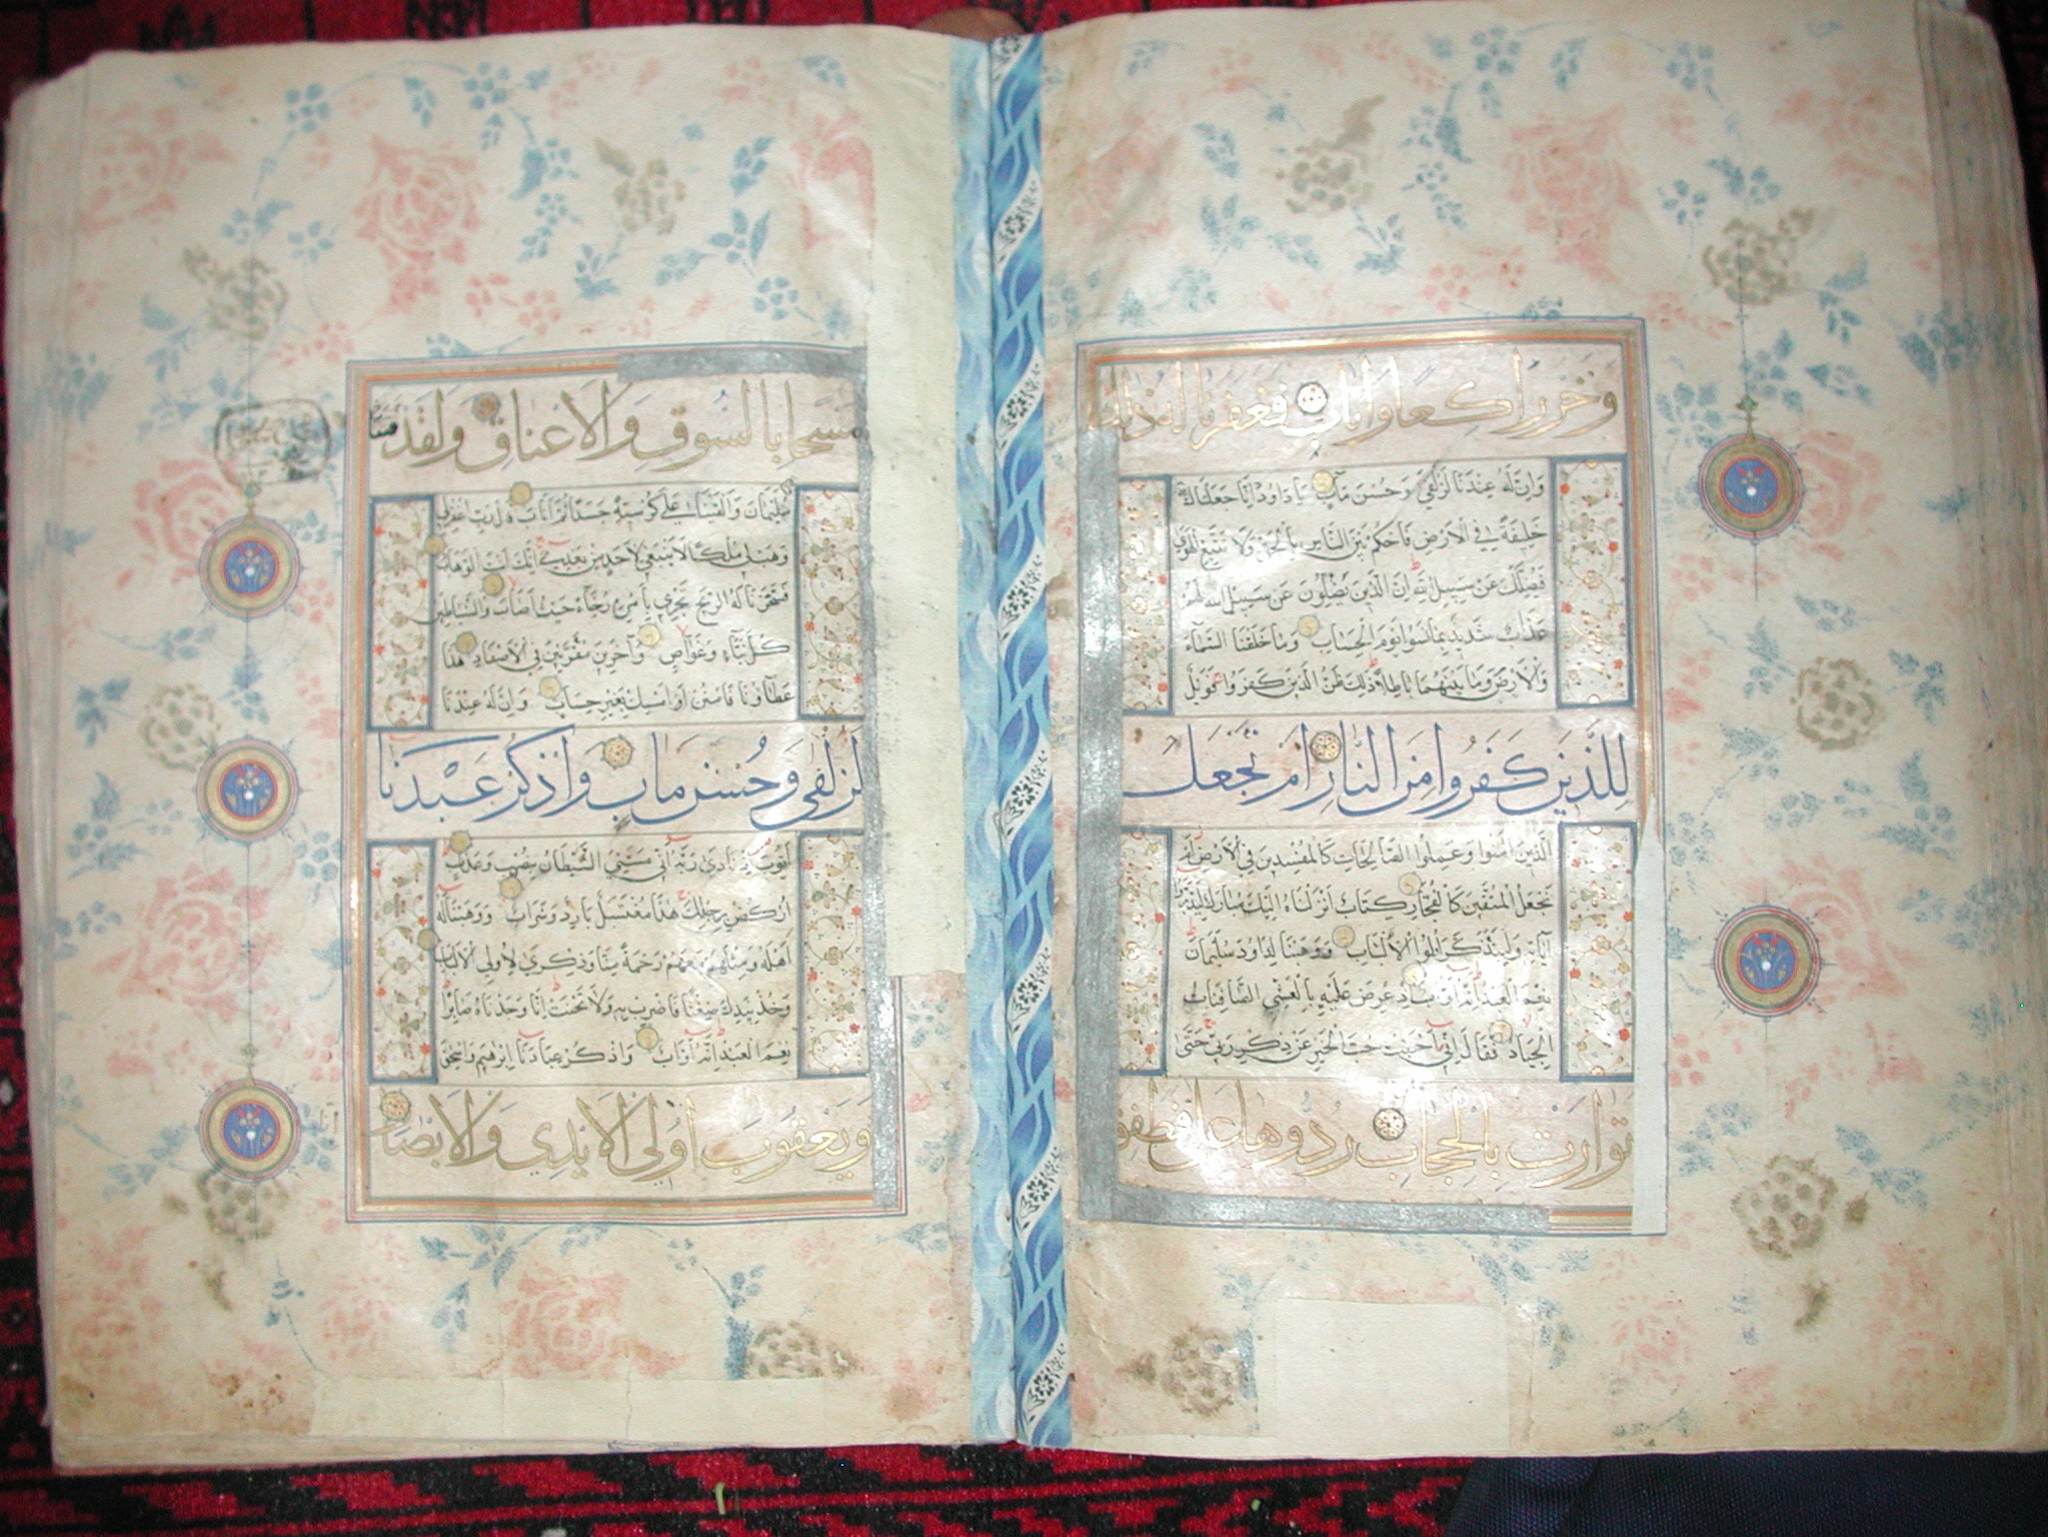 وخر راكعا واناب فغفرنا له ذلك
وَاِنَّ لَهُ عِنْدَنَا لَزُلْفٰى وَحُسْنَ مَآبٍ يَا دَاوُدُ اِنَّا جَعَلْنَاكَ
خَلِيفَةً فِي الْاَرْضِ فَاحْكُمْ بَيْنَ النَّاسِ بِالْحَقِّ وَلَا تَتَّبِعِ الْهَوٰى
فَيُضِلَّكَ عَنْ سَبِيلِ اللهِ اِنَّ الَّذِينَ يَضِلُّونَ عَنْ سَبِيلِ اللهِ لَهُمْ
عَذَابٌ شَدِيدٌ بِمَا نَسُوا يَوْمَ الْحِسَابِ وَمَا خَلَقْنَا السَّمَآءَ
وَالْاَرْضَ وَمَا بَيْنَهُمَا بَاطِلًا ذٰلِكَ ظَنُّ الَّذِينَ كَفَرُوا فَوَيْلٌ
لِلَّذِينَ كَفَرُوا مِنَ النَّارِ اَمْ نَجْعَلُ
الَّذِينَ اٰمَنُوا وَعَمِلُوا الصَّالِحَاتِ كَالْمُفْسِدِينَ فِي الْاَرْضِ اَمْ
نَجْعَلُ الْمُتَّقِينَ كَالْفُجَّارِ كِتَابٌ اَنْزَلْنَاهُ اِلَيْكَ مُبَارَكٌ لِيَدَّبَّرُوا
اٰيَاتِهِ وَلِيَتَذَكَّرَ اُولُوا الْاَلْبَابِ وَوَهَبْنَا لِدَاوُدَ سُلَيْمَانَ
نِعْمَ الْعَبْدُ اِنَّهُ اَوَّابٌ اِذْ عُرِضَ عَلَيْهِ بِالْعَشِيِّ الصَّافِنَاتُ
الْجِيَادُ فَقَالَ اِنِّي اَحْبَبْتُ حُبَّ الْخَيْرِ عَنْ ذِكْرِ رَبِّي حَتّٰى
توارت بالحجاب ردوها علي فطفق
مسحا بالسوق والاعناق ولقد فتنا
سُلَيْمَانَ وَاَلْقَيْنَا عَلٰى كُرْسِيِّهِ جَسَدًا ثُمَّ اَنَابَ قَالَ رَبِّ اغْفِرْ لِي
وَهَبْ لِي مُلْكًا لَا يَنْبَغِي لِاَحَدٍ مِنْ بَعْدِي اِنَّكَ اَنْتَ الْوَهَّابُ
فَسَخَّرْنَا لَهُ الرِّيحَ تَجْرِي بِاَمْرِهِ رُخَآءً حَيْثُ اَصَابَ وَالشَّيَاطِينَ
كُلَّ بَنَّآءٍ وَغَوَّاصٍ وَاٰخَرِينَ مُقَرَّنِينَ فِي الْاَصْفَادِ هٰذَا
عَطَآؤُنَا فَامْنُنْ اَوْ اَمْسِكْ بِغَيْرِ حِسَابٍ وَاِنَّ لَهُ عِنْدَنَا
لَزُلْفٰى وَحُسْنَ مَاٰبٍ وَاذْكُرْ عَبْدَنَا
اَيُّوبَ اِذْ نَادٰى رَبَّهُ اَنِّي مَسَّنِيَ الشَّيْطَانُ بِنُصْبٍ وَعَذَابٍ
اُرْكُضْ بِرِجْلِكَ هٰذَا مُغْتَسَلٌ بَارِدٌ وَشَرَابٌ وَوَهَبْنَا لَهُ
اَهْلَهُ وَمِثْلَهُمْ مَعَهُمْ رَحْمَةً مِنَّا وَذِكْرٰى لِاُولِي الْاَلْبَابِ
وَخُذْ بِيَدِكَ ضِغْثًا فَاضْرِبْ بِهِ وَلَا تَحْنَثْ اِنَّا وَجَدْنَاهُ صَابِرًا
نِعْمَ الْعَبْدُ اِنَّهُ اَوَّابٌ وَاذْكُرْ عِبَادَنَا اِبْرٰهِيمَ وَاِسْحٰقَ
ويعقوب اولي الايدي والابصار